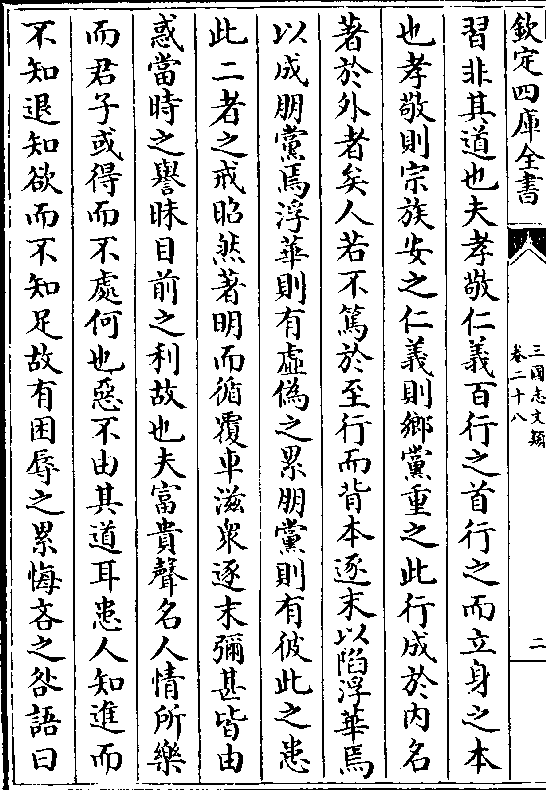 欽定四庫全書
三國志文類
卷二十八
二
習非其道也夫孝敬仁義百行之首行之而立身之本
也孝敬則宗族安之仁義則鄉黨重之此行成於内名
著於外者矣人若不篤於至行而背本逐末以陷浮華焉
以成朋黨焉浮華則有虚偽之累朋黨則有彼此之患
此二者之戒昭然著明而循覆車滋衆逐末彌甚皆由
惑當時之譽昧目前之利故也夫富貴聲名人情所樂
而君子或得而不處何也惡不由其道耳患人知進而
不知退知欲而不知足故有困辱之累悔吝之咎語曰